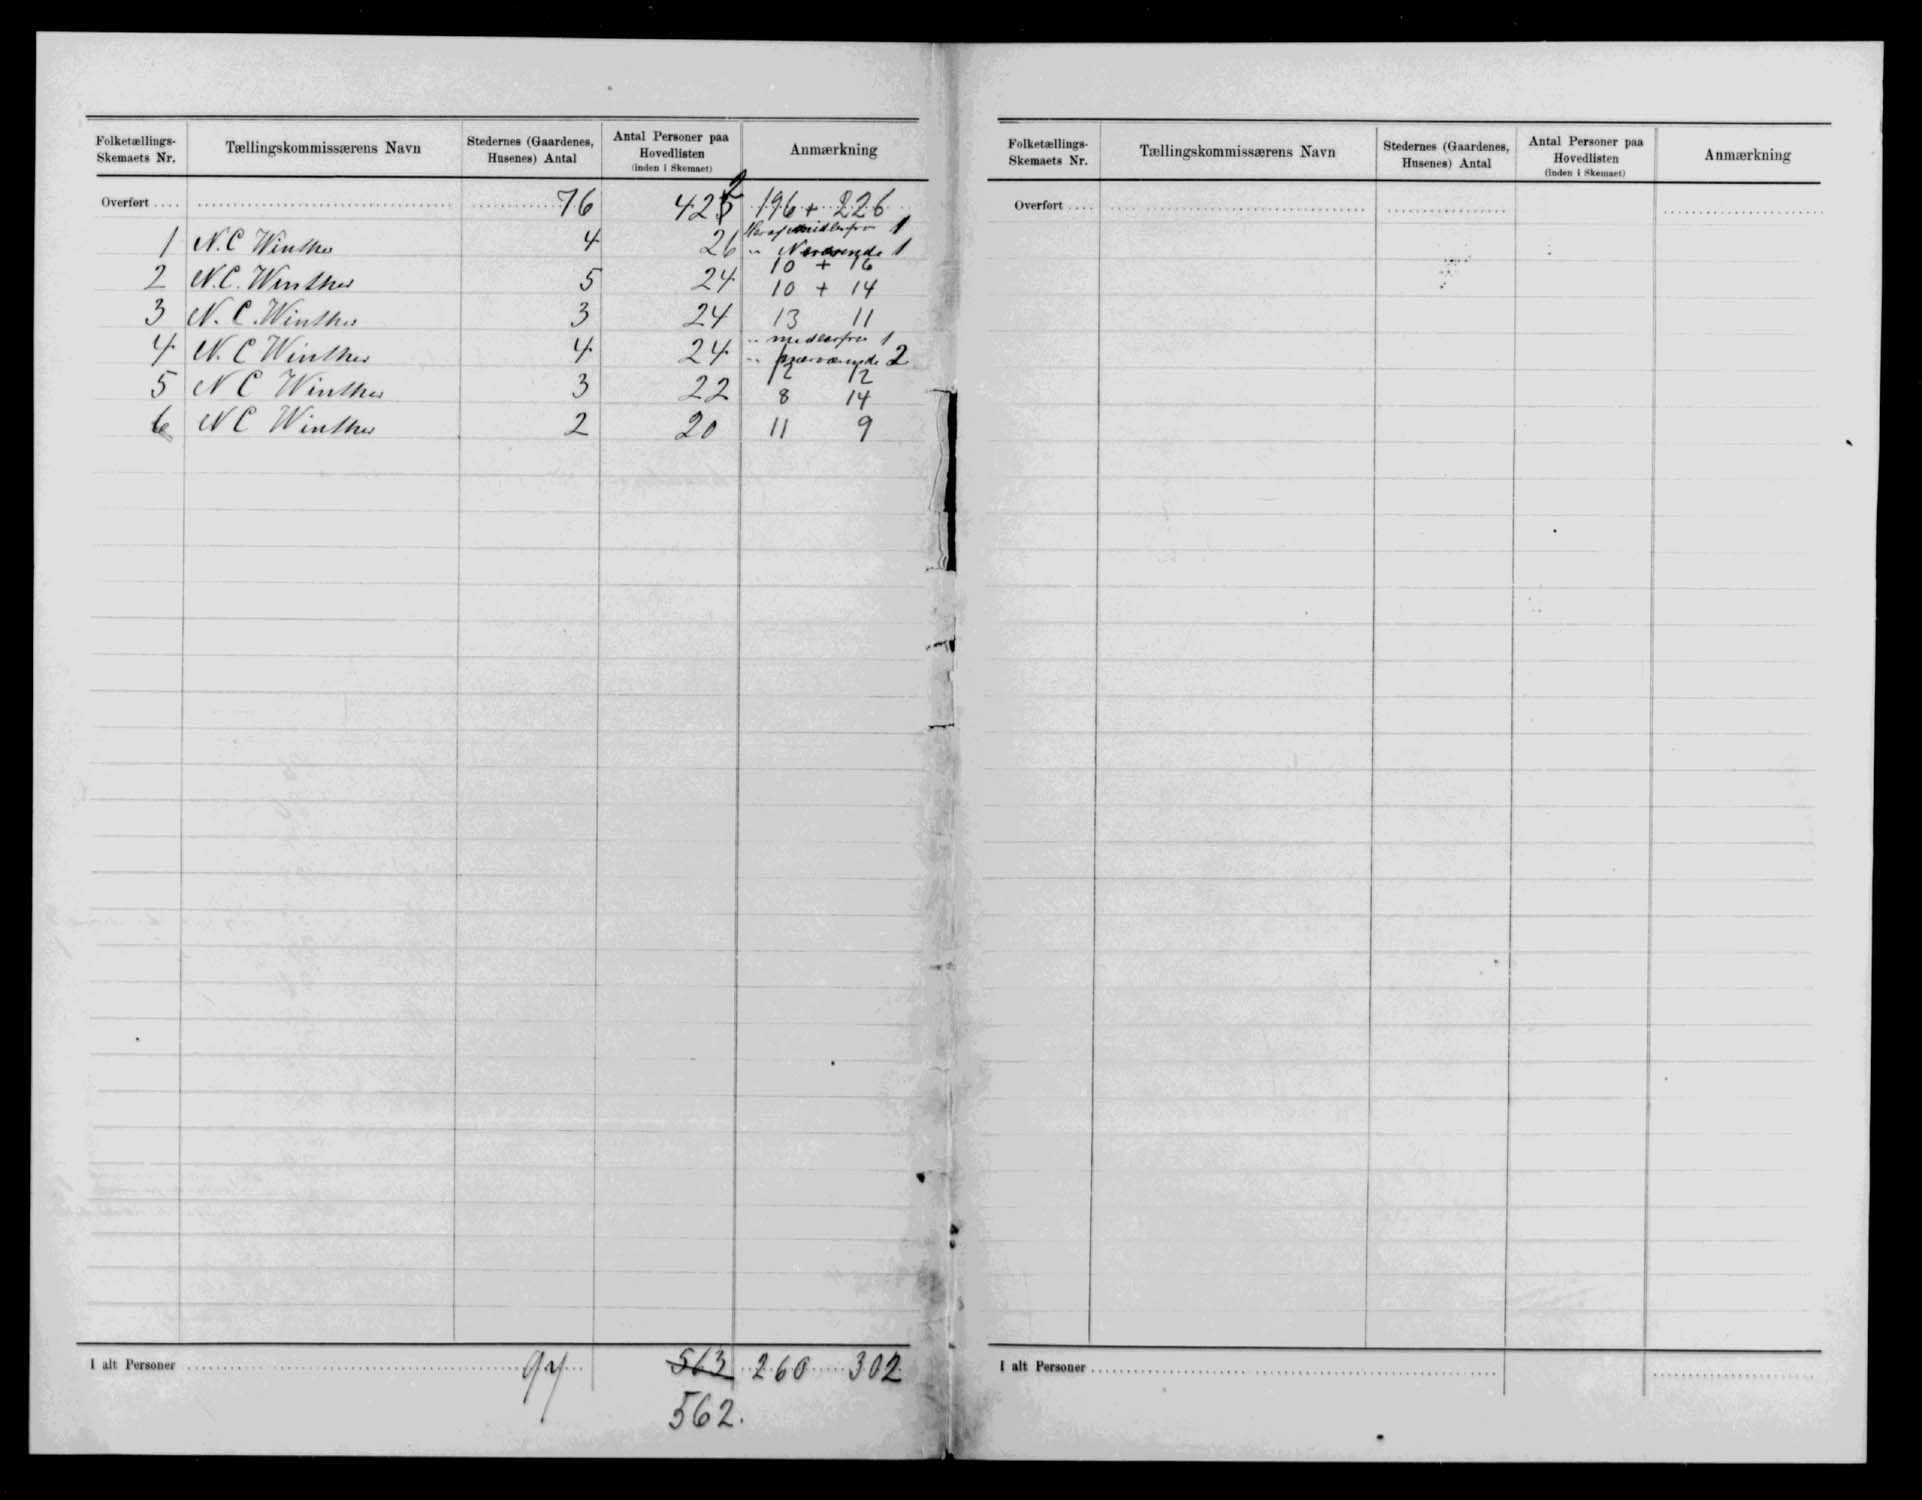 Folketællings-Skemaets Nr. Tællingskommissærens Navn Stedernes (Gaardenes, Husenes) Antal Antal Personer paa Hovedlisten (inden i Skemaet) Anmærkning
Overført 76 422 196 + 226
Heraf midlerfra 1
1 N.C Winther 4 26 " Nærværende 1
10 + 16
2 N.C. Winther 5 24 10 + 14
3 N. C. Winther 3 24 13 11
" midlerfra 1
4 N. C Winther 4 24 " nærværende 2
12 12
5 N C Winther 3 22 8 14
6 N C Winther 2 20 11 9
I alt Personer 97 563 260 302
562.
Folketællings-Skemaets Nr. Tællingskommissærens Navn Stedernes (Gaardenes, Husenes) Antal Antal Personer paa Hovedlisten (inden i Skemaet) Anmærkning
Overført
I alt Personer